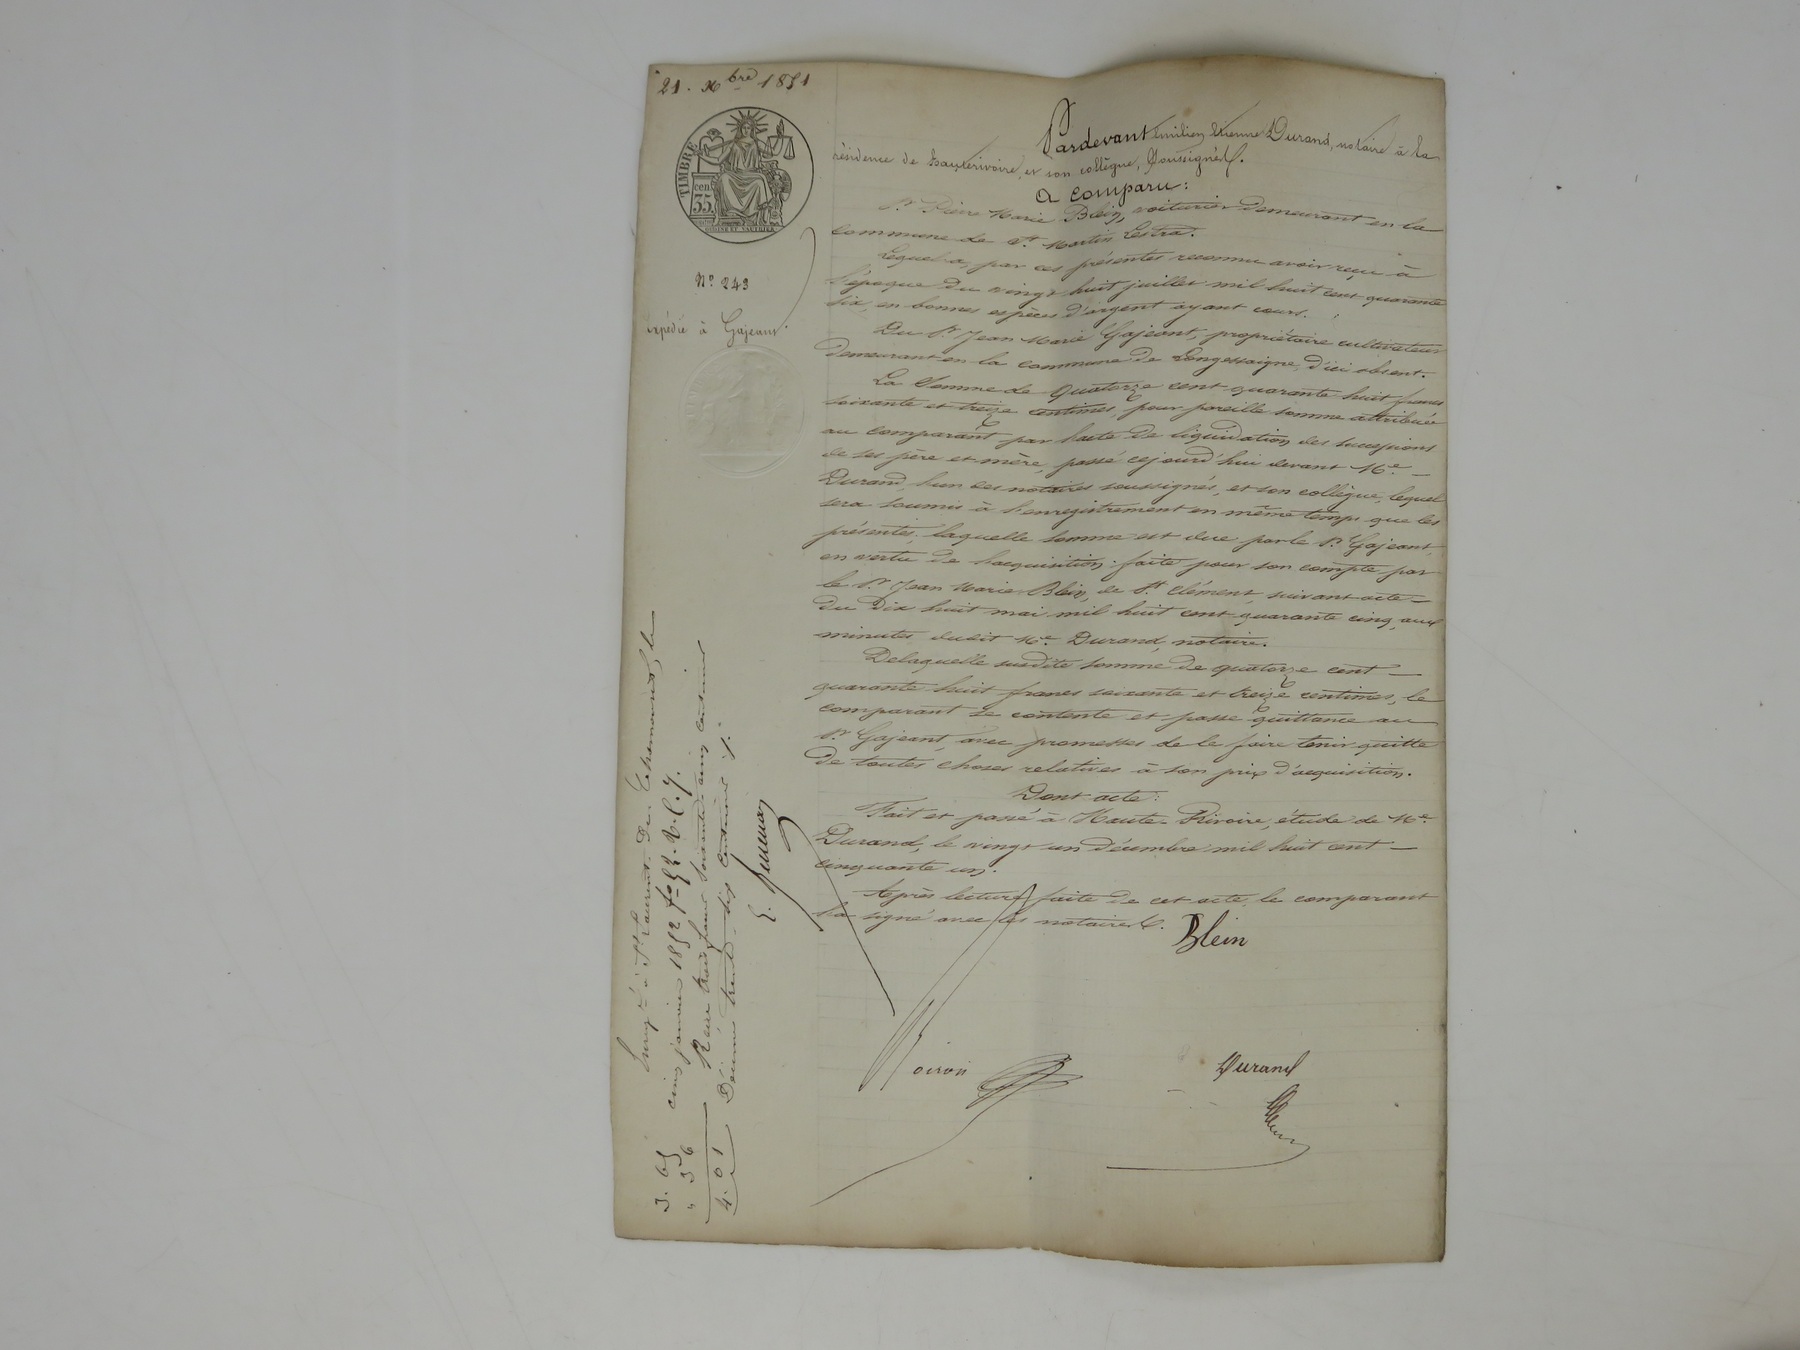 21. Xbre 1851
TIMBRE
cen.
35.
DOMINE ET VAUTRIER
No 243
expédié à Gajeant.
Pardevant Emilien Etienne Durand, notaire à la
résidence de hauterivoire, et son collègue, Soussignés.
A comparu :
Sr. Pierre Marie Blein, voiturier demeurant en la
commune de St. Martin Lestra.
Lequel a, par ces présentes reconnu avoir reçu à
l'époque du vingt huit juillet mil huit cent quarante
six, en bonnes espèces d'argent ayant cours.
Du Sr. Jean Marie Gajeant, propriétaire cultivateur
demeurant en la commune de Longessaigne, d'ici absent.
La Somme de Quatorze cent quarante huit francs
soixante et treize centimes, pour pareille somme attribuée
au comparant par l'acte de liquidation des successions
de ses père et mère, passé cejourd'hui devant Me.
Durand, l'un des notaires soussignés, et son collègue, lequel
sera soumis à l'enregistrement en même temps que les
présentes, laquelle somme est due par le Sr. Gajeant,
en vertu de l'acquisition faite pour son compte par
le Sr. Jean Marie Blein, de St. Clément, suivant acte
du Dix huit mai mil huit cent quarante cinq, aux
minutes dudit Me. Durand, notaire.
Delaquelle susdite somme de quatorze cent
quarante huit francs soixante et treize centimes, le
comparant se contente et passe quittance au
Sr. Gajeant, avec promesses de le faire tenir quitte
de toutes choses relatives à son prix d'acquisition.
Dont acte :
Fait et passé à Haute-Rivoire, étude de Me.
Durand, le vingt un Décembre mil huit cent
cinquante un.
Après lecture faite de cet acte, le comparant
l'a signé avec les notaires.
Blein
Durand
Enregté à St. Laurent de Chamousset, le
cinq janvier 1852 fo
Reçu trois francs soixante cinq centimes
Décime trente six centimes
3. 65
" 36
4. 01